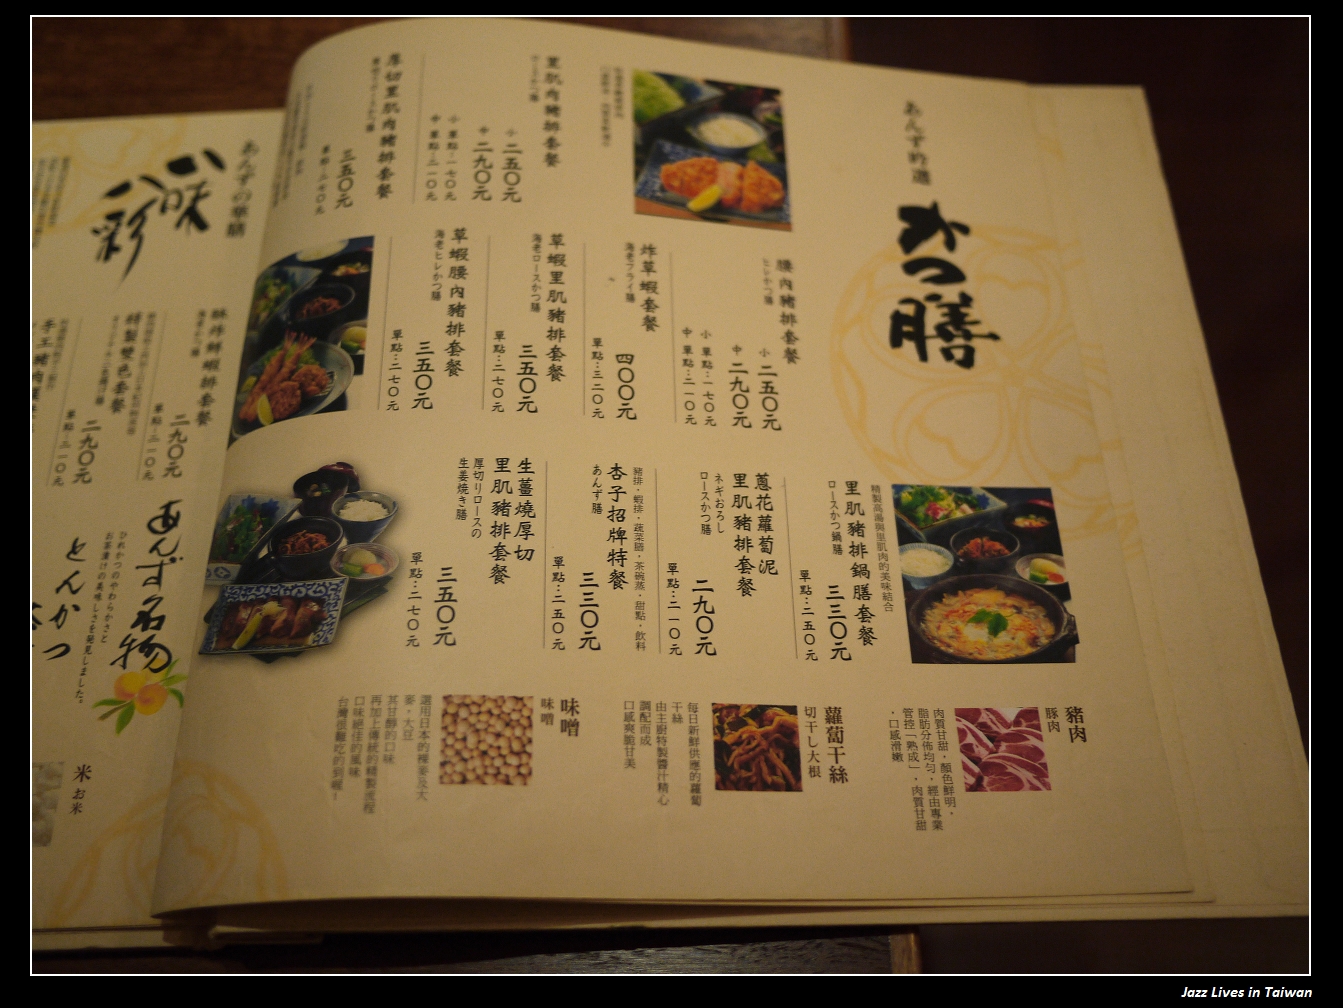 あんず的選
かつ膳
里肌肉豬排套餐
ロースかつ膳
小 二五〇元
中 二九〇元
小 單點：一七〇元
中 單點：二一〇元
厚切里肌肉豬排套餐
三五〇元
單點：二七〇元
腰內豬排套餐
ヒレかつ膳
小 二五〇元
中 二九〇元
小 單點：一七〇元
中 單點：二一〇元
炸草蝦套餐
海老フライ膳
四〇〇元
單點：三二〇元
草蝦里肌豬排套餐
海老ロースかつ膳
三五〇元
單點：二七〇元
草蝦腰內豬排套餐
海老ヒレかつ膳
三五〇元
單點：二七〇元
精製高湯與里肌肉的美味結合
里肌豬排鍋膳套餐
ロースかつ鍋膳
三三〇元
單點：二五〇元
蔥花蘿蔔泥
里肌豬排套餐
ネギおろし
ロースかつ膳
二九〇元
單點：二一〇元
豬排．蝦排．蔬菜膳．茶碗蒸．甜點．飲料
杏子招牌特餐
あんず膳
三三〇元
單點：二五〇元
生薑燒厚切
里肌豬排套餐
厚切りロースの
生姜焼き膳
三五〇元
單點：二七〇元
豬肉
豚肉
肉質甘甜，顏色鮮明，
脂肪分佈均勻，經由專業
管控「熟成」，肉質甘甜
，口感滑嫩
蘿蔔干絲
切干し大根
每日新鮮供應的蘿蔔
干絲
由主廚特製醬汁精心
調配而成
口感爽脆甘美
味噌
味噌
選用日本的裸麥及大
麥，大豆
其甘醇的口味
再加上傳統的精製過程
口味絕佳的風味
台灣很難吃的到喔！
あんずの華膳
八味
八彩
酥炸鮮蝦排套餐
海老かつ膳
二九〇元
單點：二一〇元
特製雙色套餐
二九〇元
單點：二一〇元
あんず名物
ひれかつのやわらかさと
お茶漬けの美味しさを発見しました。
とんかつ
米お米
Jazz Lives in Taiwan